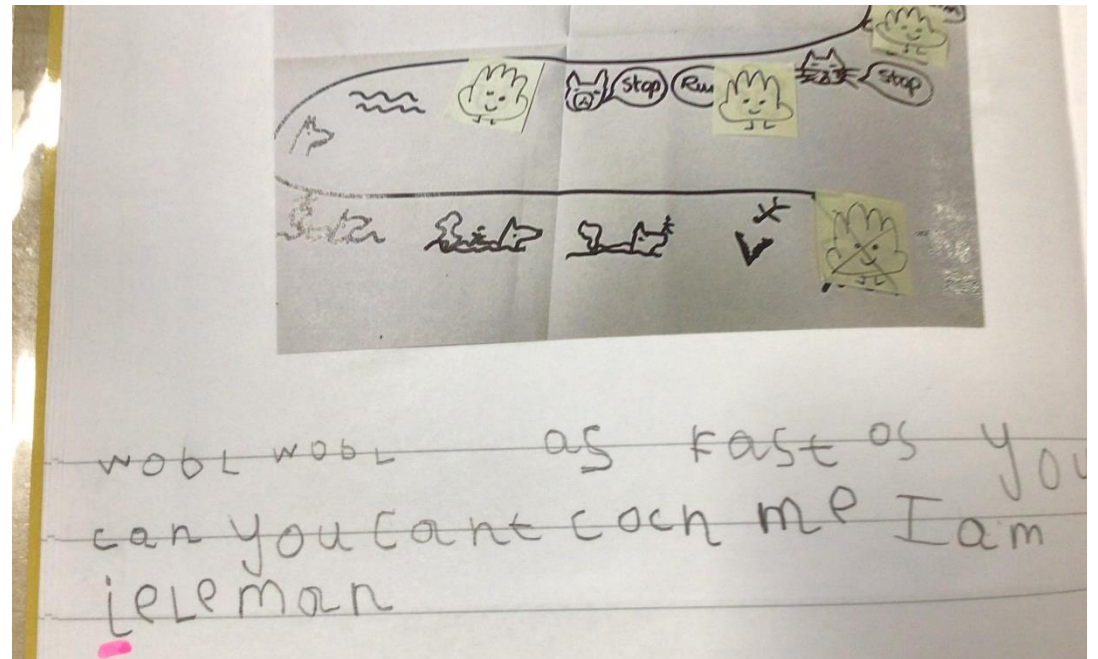 Stop Run Stop
wobl wobl as fast os you
can you cant coch me I am
jeleman